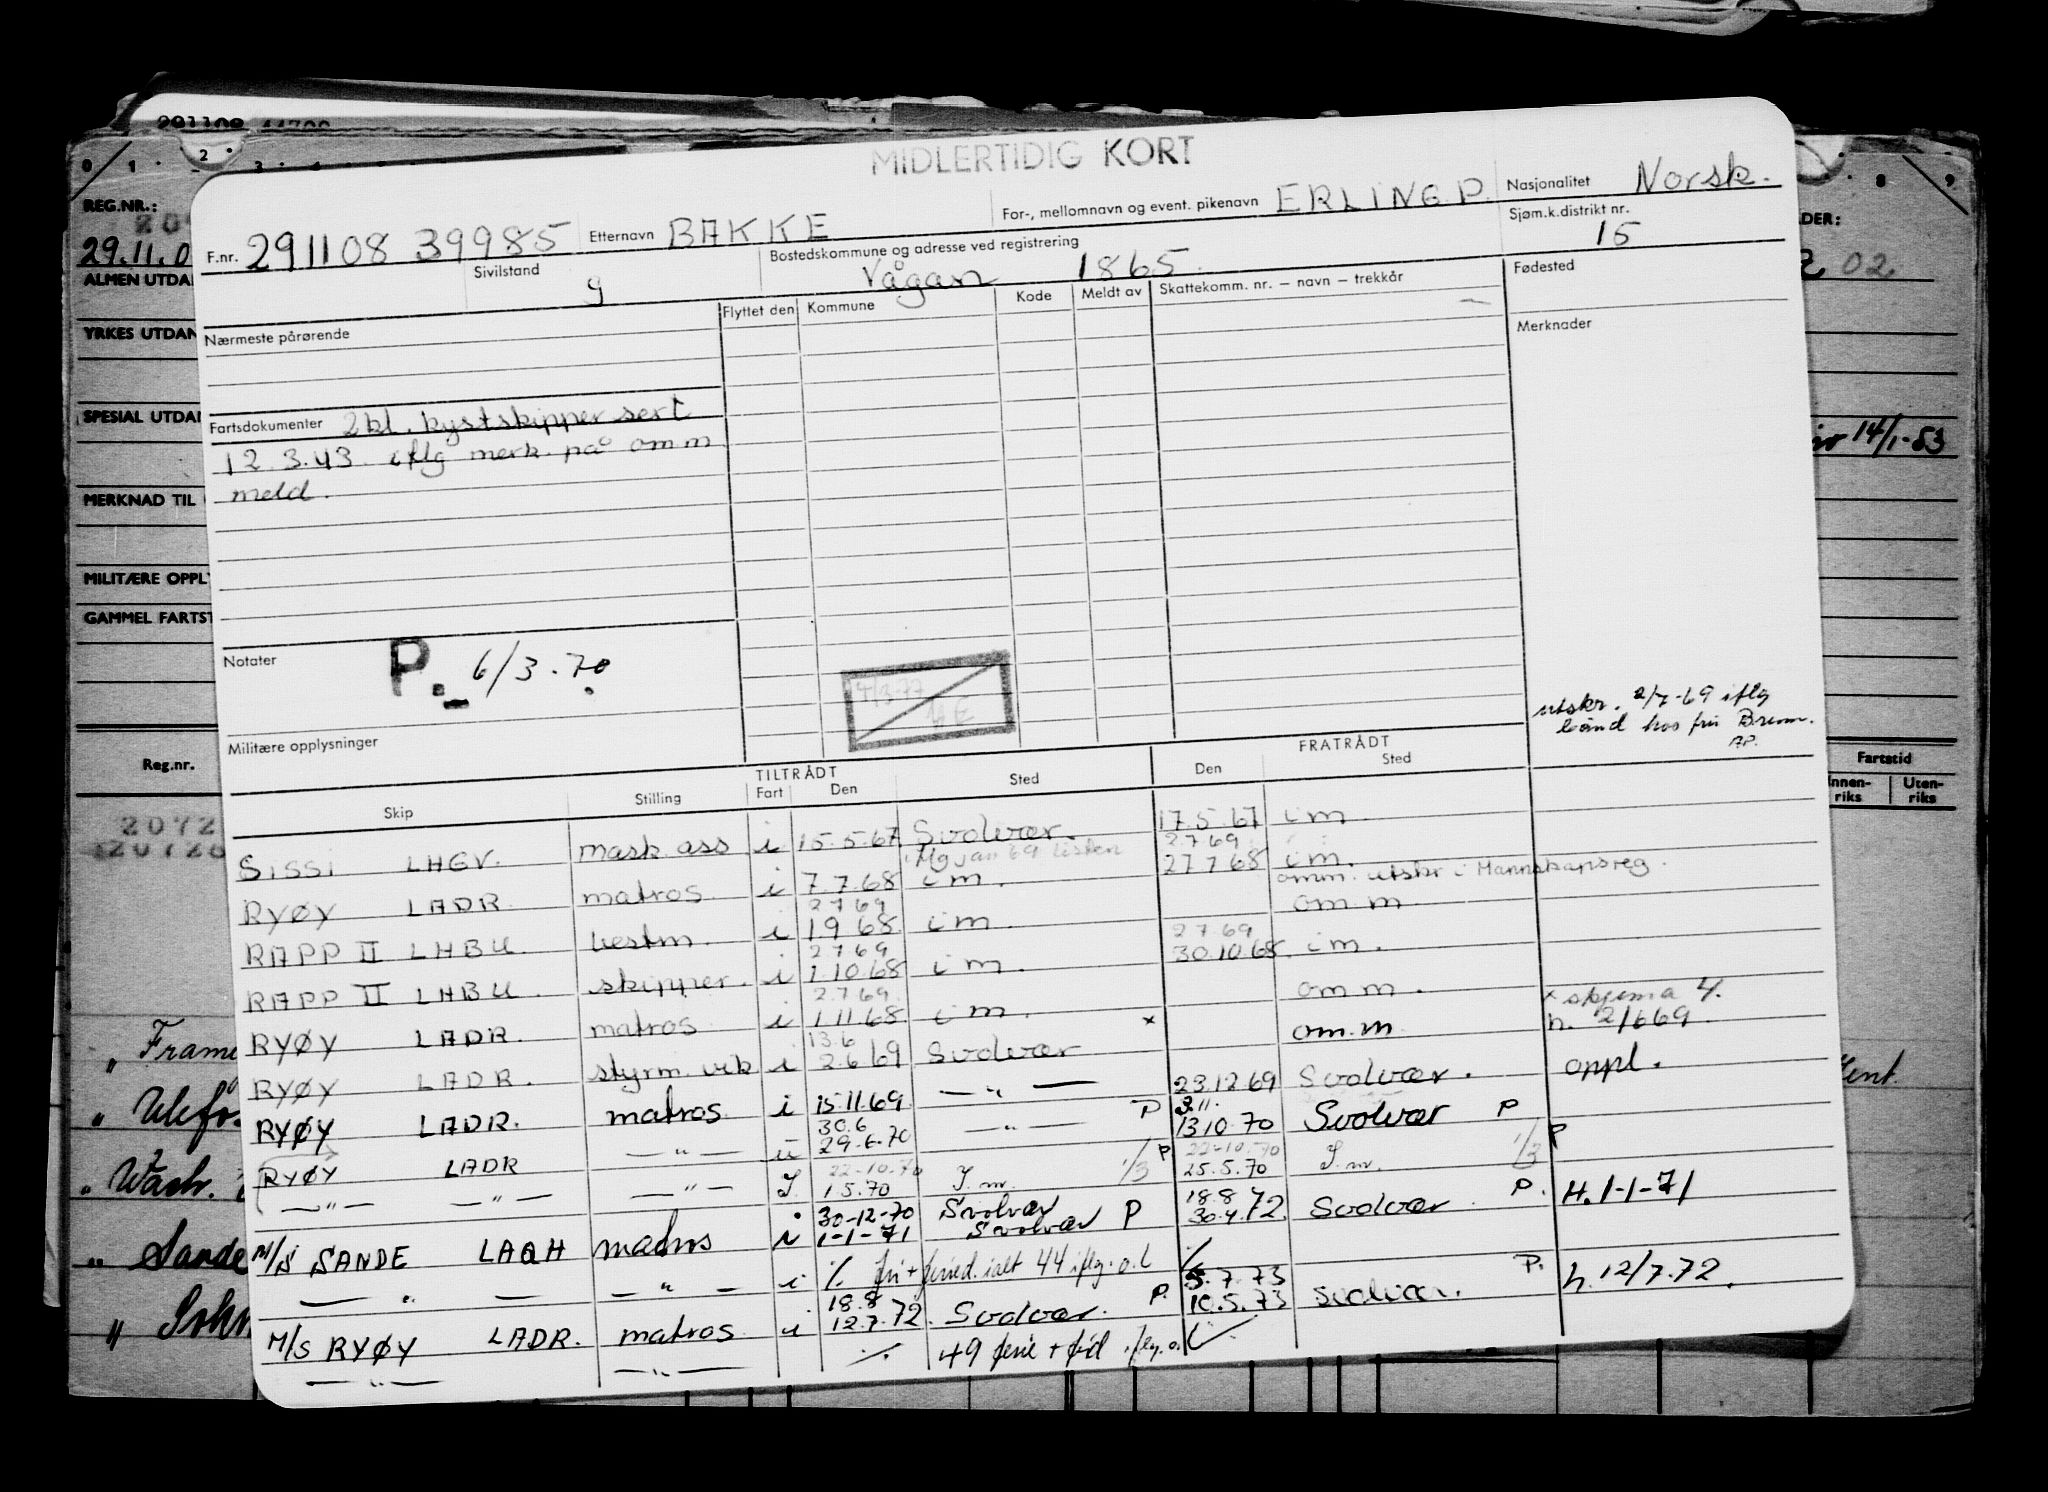 291108 44700
0 1 2 3 4 8 9
MIDLERTIDIG KORT
REG.NR.:
29.11.0
ALMEN UTDA
YRKES UTDAN
SPESIAL UTDA
MERKNAD TIL
MILITÆRE OPPLY
GAMMEL FARTST
Reg.nr.
F.nr. 291108 39985 Etternavn BAKKE For-, mellomnavn og event. pikenavn ERLING P. Nasjonalitet Norsk.
Sivilstand g Bostedskommune og adresse ved registrering Vågan 1865 Sjøm.k.distrikt nr. 15
Nærmeste pårørende Flyttet den Kommune Kode Meldt av Skattekomm. nr. – navn – trekkår Fødested
Merknader
Fartsdokumenter 2kl. kystskipper sert
12.3.43 iflg merk. på omm
meld.
Notater P. 6/3.70
4/3-77
utskr. 2/7-69 iflg
Militære opplysninger
TILTRÅDT FRATRÅDT
Skip Stilling Fart Den Sted Den Sted
SISSI LHGV. mask.ass i 15.5.67 Svolvær. 17.5.67 i m
iflg jan 69 listen 2.7.69
RYØY LADR matros i 7.7.68 i m. 27.7.68 i m.
omm. utskr i Mannskapsreg.
2769
RAPP II LHBU bestm. i 1.9.68 i m om m
2769 2769
RAPP II LHBU. skipper. i 1.10.68 i m. 30.10.68. i m.
2.7.69.
RYØY LADR. matros i 1.11.68 i m. om m.
13.6 × × skjema 4.
RYØY LADR. styrm. vik i 2.6.69 Svolvær om.m h. 2/6 69.
RYØY LADR. matros i 15.11.69 — " — 23.12.69 Svolvær. oppl.
30.6 3.11.
RYØY LADR — " — i 29.6.70 — " — P 13.10.70 Svolvær P
22-10.70 22-10.70
— " — — " — — " — 1.5.70 1/3 P 25.5.70 1/3 P
30-12-70 Svolvær 18.8
M/S SANDE LAQH matros i 1-1-71 Svolvær P 30.4.72 Svolvær P. H. 1-1-71
— " — — " — i ./. fri + feried. ialt 44 iflg. o.l ./.
18.8 5.7.73
M/S RYØY LADR. matros i 12.7.72. Svolvær. P. 10.5.73 Svolvær. P. h. 12/7.72.
— " — — " — ./. 49 ferie + frid iflg. o.l
DER:
02
14/1-53
Fartstid
Innen-riks Uten-riks
2072
" Frame
" Sande